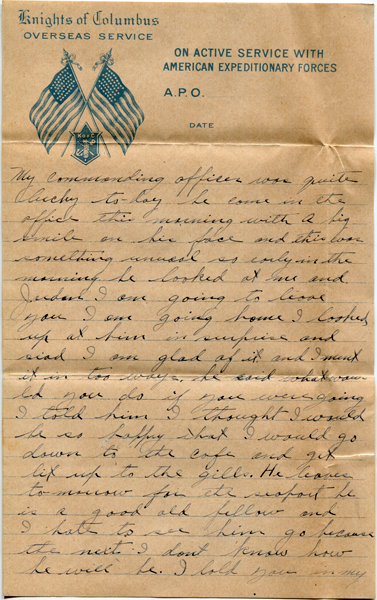 Knights of Columbus
OVERSEAS SERVICE
ON ACTIVE SERVICE WITH
AMERICAN EXPEDITIONARY FORCES
A.P.O.
DATE
My commanding officer was quite
lucky to-day he come in the
office this morning with a big
smile on his face and this was
something unusal so early in the
morning he looked at me and
I am going to leave
you I am going home I looked
up at him in surprise and
siad I am glad of it and I ment
it in too ways. he said what wou-
ld you do if you were going
I told him I thought I would
be so happy that I would go
down to the cafe and get
lit up to the gills. He leaves
to-morrow for the seaport he
is a good old fellow and
I hate to see him go because
the next I dont know how
he will be. I told you in my